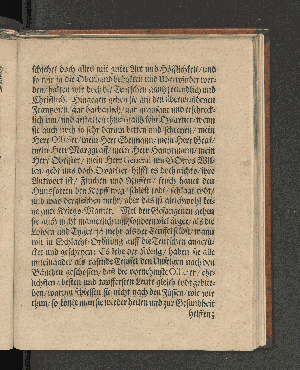 schiehet doch alles mit guter Art und Höfflichkeit/und
so wir ja die Oberhand behalten und Überwinder wer-
den/halten wir doch die Teutschen gantz freundlich und
Christlich. Hingegen gehen sie mit den überwundenen
Frantzosen/gar barbarisch/gar grausam und erschreck-
lich um/und geben ihnen durchaus kein Quartier/wenn
sie auch noch so sehr darum betten und schreyen/mein
Herr Officier/mein Herr Edelmann/mein Herr Graf/
mein Herr Marggraff/mein Herr Hauptmann/mein
Herr Obrister/mein Herr General um Gottes Wil-
len/gebt uns doch Quartier/hilfft es doch nichts/ihre
Antwort ist/Fluchen und Ruffen/
Hundsfotten den Kopff weg/schiess todt/schlag todt/
und was dergleichen mehr/aber das ist gleichwol kei-
ne gute Kriegs-Manier. Mit den Gefangenen gehen
sie auch nicht menschlich um/sondern viel ärger als die
Löwen und Tyger/ja mehr als der Teuffel selbst/wann
wir in Schlacht-Ordnung auff die Teutschen angerü-
cket und geschryen: Es lebe der König/haben sie alle
miteinander als rasende Teuffel den Unserigen nach den
Bäuchen geschossen/daß die vornehmste Officier/ehr-
lichsten/besten und tapffersten Leute gleich todt geblie-
ben/warum schiessen sie nicht nach den Füssen/wie wir
thun/so könte man sie wieder heilen und zur Gesundheit
helffen;